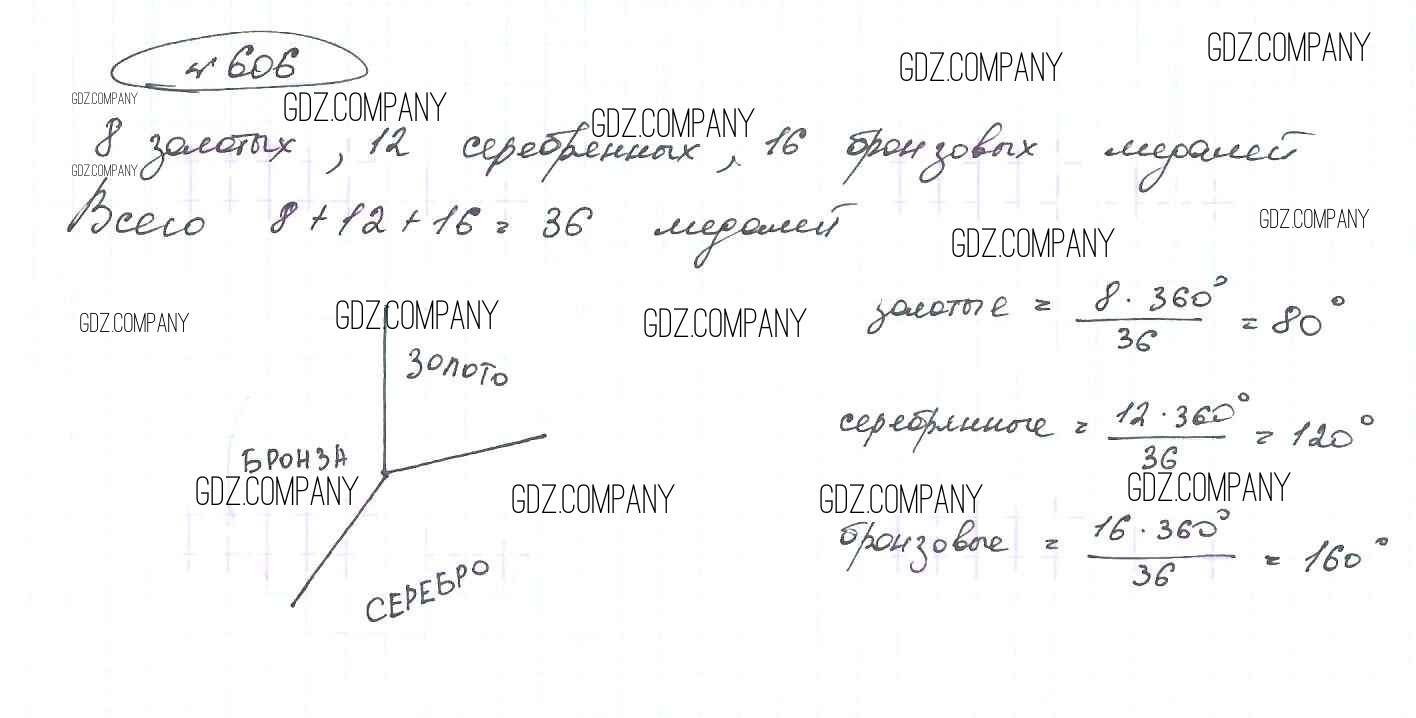 № 606
GDZ.COMPANY GDZ.COMPANY
GDZ.COMPANY GDZ.COMPANY GDZ.COMPANY
8 золотых, 12 серебренных, 16 бронзовых медалей
GDZ.COMPANY
Всего 8 + 12 + 16 = 36 медалей
GDZ.COMPANY GDZ.COMPANY
GDZ.COMPANY GDZ.COMPANY GDZ.COMPANY
золотые = 8 · 360° / 36 = 80°
ЗОЛОТО
серебрянные = 12 · 360° / 36 = 120°
БРОНЗА
GDZ.COMPANY GDZ.COMPANY GDZ.COMPANY GDZ.COMPANY
бронзовые = 16 · 360° / 36 = 160°
СЕРЕБРО